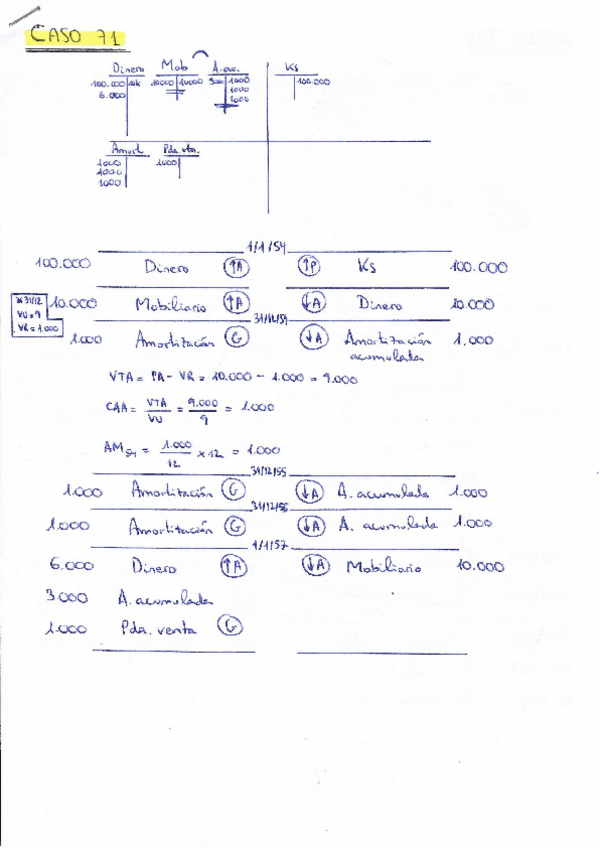 CASO 71
Dinero Mob A.acu. Ks
100.000 10k 10000 10000 3000 1000 100.000
6.000 1000
1000
Amort. Pda. vta.
1000 1000
1000
1000
1/1/54
100.000 Dinero ↑A ↑P Ks 100.000
10.000 Mobiliario ↑A ↓A Dinero 10.000
* 31/12
VU = 9
VR = 1.000
31/12/54
1.000 Amortización G ↓A Amortización acumulada 1.000
VTA = PA - VR = 10.000 - 1.000 = 9.000
CAA = VTA / VU = 9.000 / 9 = 1.000
AM54 = 1.000 / 12 x 12 = 1.000
31/12/55
1.000 Amortización G ↓A A. acumulada 1.000
31/12/56
1.000 Amortización G ↓A A. acumulada 1.000
1/1/57
6.000 Dinero ↑A ↓A Mobiliario 10.000
3.000 A. acumulada
1.000 Pda. venta G